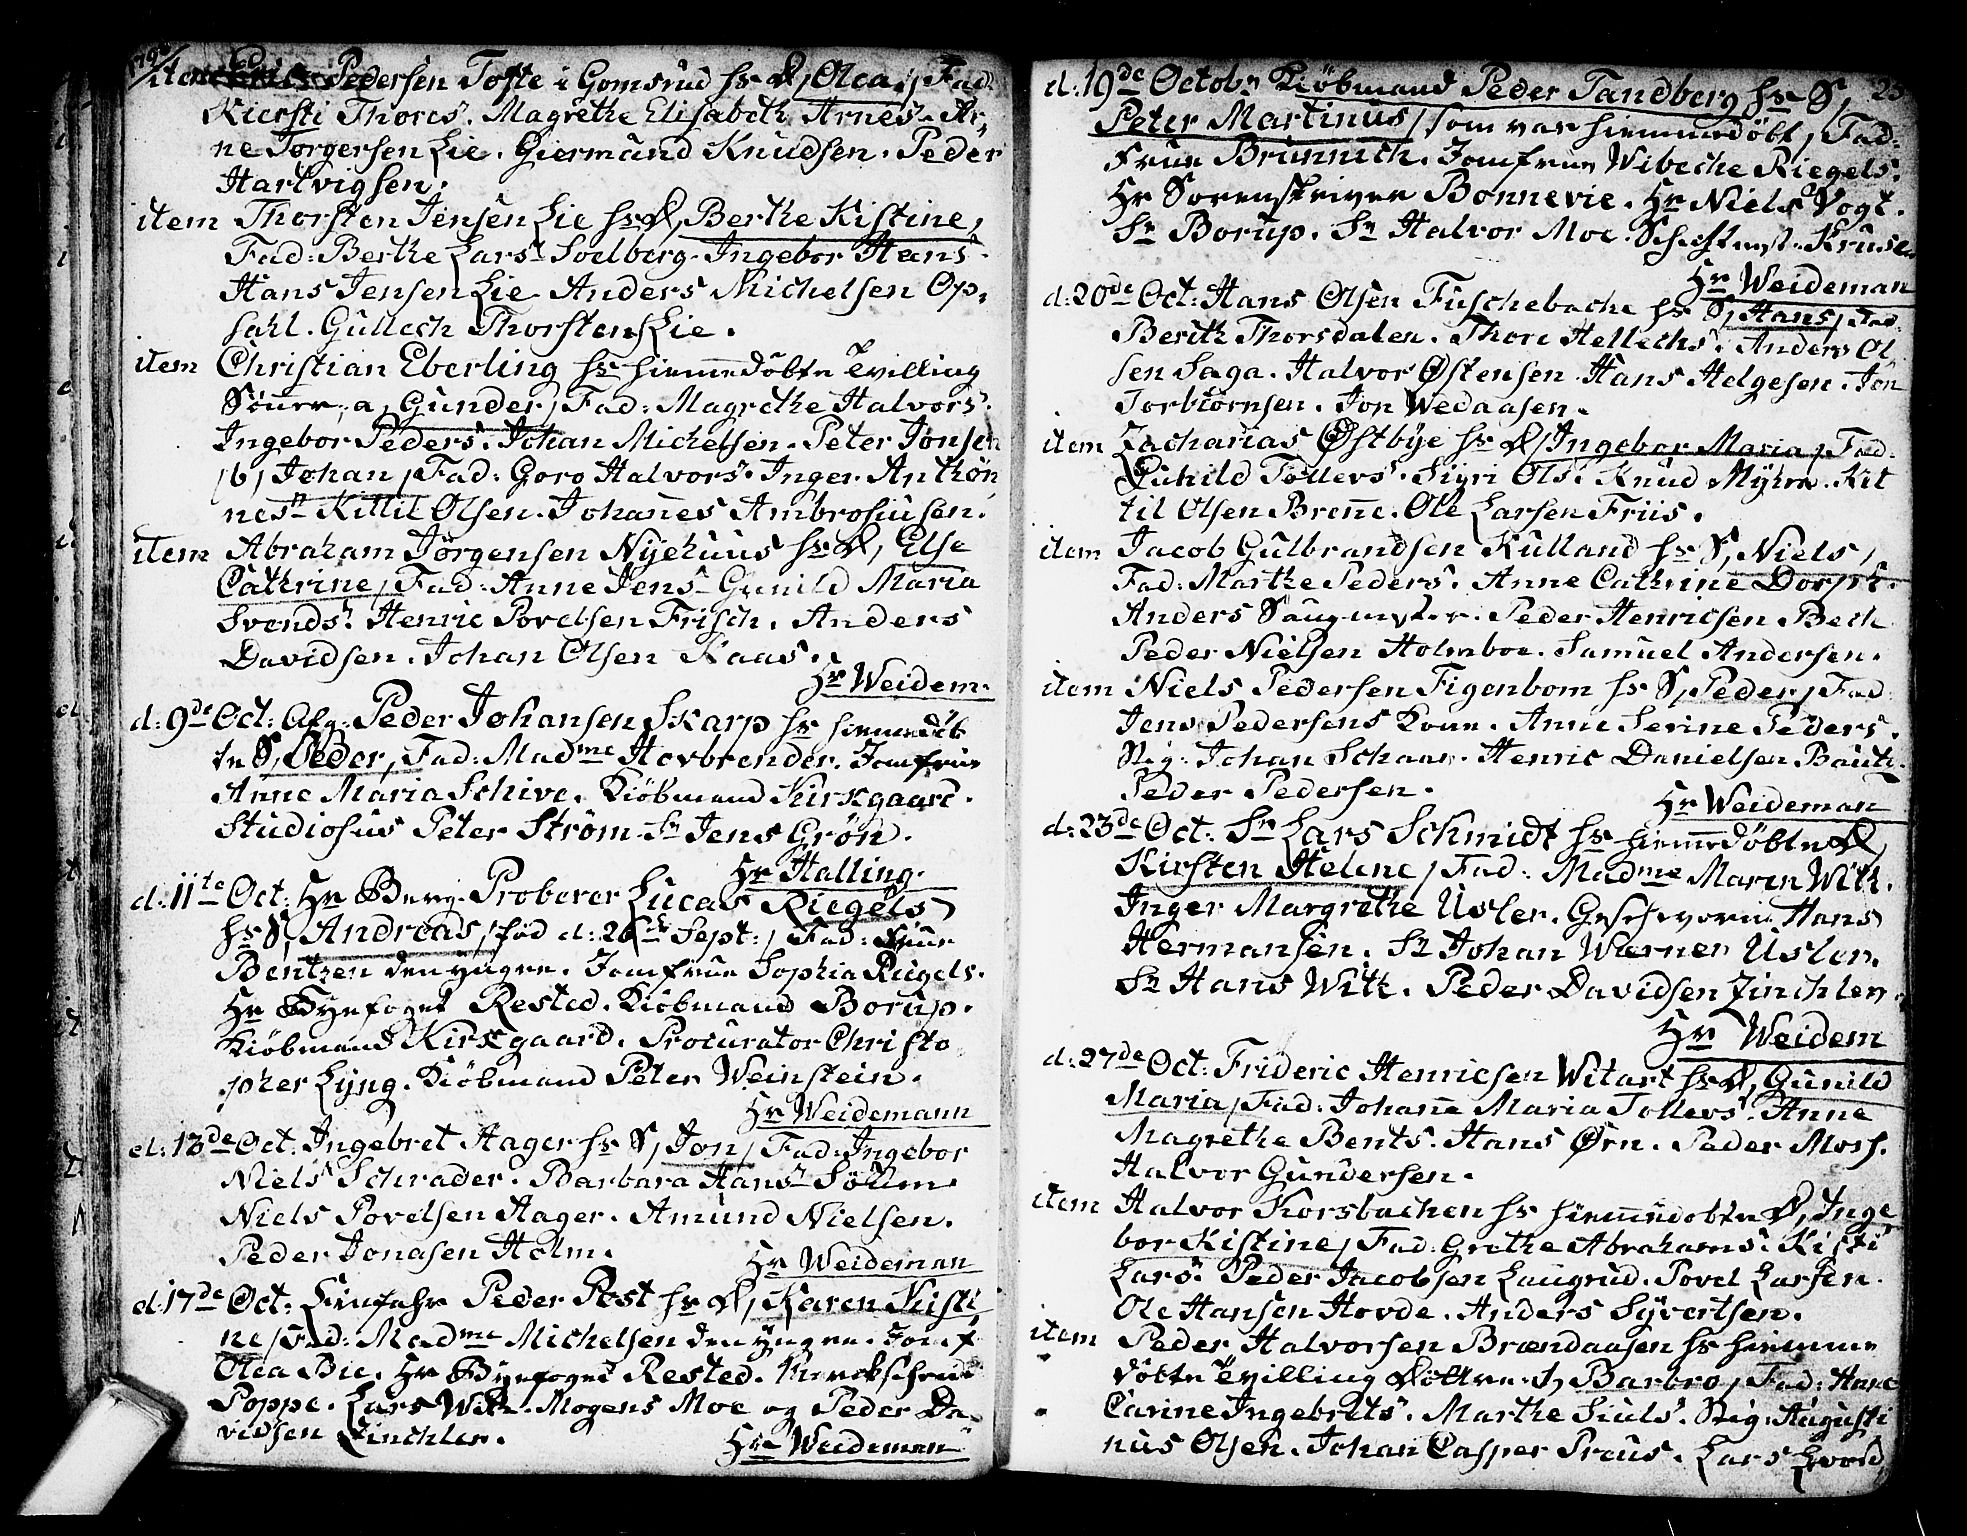 item Pedersen Tofte i Gomsrud hs D, Olea, / Fad:
Kiersti Thores. Magrethe Elisabeth Arnes. Ar,
ne Torgersen Lie. Giermund Knudsen. Peder
Hartvigsen.
item Thorsten Jensen Lie hs D, Berthe Kistine,
Fad: Berthe Lars Soelberg. Ingebor Hans.
Hans Jensen Lie. Anders Michelsen Op,
sahl. Gullech Thorstens Lie.
item Christian Eberling hs hiemmedöbte Tvilling
Sönner, a, Gunder, Fad: Magrethe Halvors.
Ingebor Peders. Johan Michelsen. Peter Jonsen
/b, Johan, Fad: Goro Halvors. Inger Anthön,
nes. Kittil Olsen. Johanes Ambrosiusen.
item Abraham Jörgensen Nyehuus hs D, Else
Cathrine, Fad: Anne Jens. Gunild Maria
Svends. Henric Povelsen Frisch. Anders
Davidsen. Johan Olsen Kaas.
Hr Weidem.
d: 9de Oct: Peder Johansen Skarp hs hiemmedöb
te S, Peder, Fad: Madme Hovbrender. Jomfrue
Anne Maria Schive. Kiöbmand Kirkgaard.
Studiosus Peter Ström. Sr Jens Grön.
Hr Halling.
d: 11te Oct: Hr Berg-Proberer Lucas Riegels
hs S, Andreas, föd d: 26de Sept:, Fad: Frue
Bentzen den yngre. Jomfrue Sophia Riegels.
Hr Byefoget Rested. Kiöbmand Borup.
Kiöbmand Kirkgaard. Procurator Christo
pher Lyng. Kiöbmand Peter Weinstein.
Hr Weidemann
d: 13de Oct: Ingebret Hager hs S, Jon, Fad: Ingebor
Niels Schrader. Barbara Hans
Niels Povelsen Hager. Amund Nielsen.
Peder Jonasen Holm.
Hr Weideman
d: 17de Oct: Peder Post hs D, Karen Kisti
ne, Fad: Madme Michelsen den yngre. Jomf
Olea Bie. Hr Byefoged Rested.
Poppe. Lars Mogens Moe og Peder Da
vidsen Zinchler.
Hr Weideman
d: 19de Octobr Kiöbmand Peder Tandberg hs S,
Peter Martinus, som var hiemmedöbt, Fad:
Frue Brünnich. Jomfrue Wibeche Riegels.
Hr Sorenskriver Bonnevie. Hr Niels Vogt.
Sr Borup. Sr Halvor Moe. Kruse
Hr Weideman
d: 20de Oct: Hans Olsen Fuschebache hs S, Hans, Fad:
Berith Thorsdalen. Thore Hellechs. Anders Ol,
sen Saga. Halvor Østensen. Hans Helgesen. Jon
Torbiörnsen. Jon Wedaasen.
item Zacharias Østbye hs D, Ingebor Maria, Fad:
Tollevs. Siyri Ols. Knud Myhra. Kit
til Olsen Brenne. Ole Larsen Friis.
item Jacob Gulbrandsen Kulland hs S, Niels,
Fad: Marthe Peders. Anne Cathrine Dorph.
Anders Saugmester. Peder Henricsen Bech
Peder Nielsen Holmboe. Samuel Andersen.
item Niels Pedersen Figenbom hs S, Peder, Fad:
Jens Pedersens Kone. Anne Serine Peders.
Stig: Johan Schaar. Henric Danielsen Bauth.
Peder Pedersen.
Hr Weideman
d: 23de Oct: Sr Lars Schmidt hs hiemmedöbte D,
Kirsten Helene, Fad: Madme Maren Witt.
Inger Margrethe Usler. Geschworne Hans
Hermansen. Sr Johan Werner Usler.
Sr Hans Witt. Peder Davidsen Zinchler.
Hr Weidem
d: 27de Oct: Frideric Henricsen Witart hs D, Gunild
Maria, Fad: Johanne Maria Tollevs. Anne
Magrethe Bents. Hans Ørn. Peder Moss.
Halvor Gundersen.
item Halvor Korsbachen hs hiemmedöbte D, Inge
bor Kistine, Fad: Grethe Abrahams. Kisti
Lars. Peder Jacobsen Laugrud. Povel Larsen.
Ole Hansen Hovde. Anders Syvertsen.
item Peder Halvorsen Brændaasen hs hiemme
döbte Tvilling Döttre. Barbro, Fad: Hane
Carine Ingebrets. Marthe Siuls. Stig: Augusti
nus Olsen. Johan Casper Preus. Lars